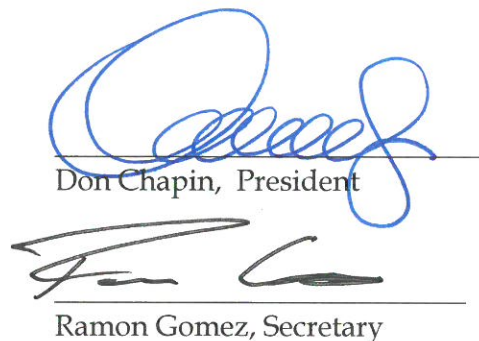 Don Chapin, President
Ramon Gomez, Secretary